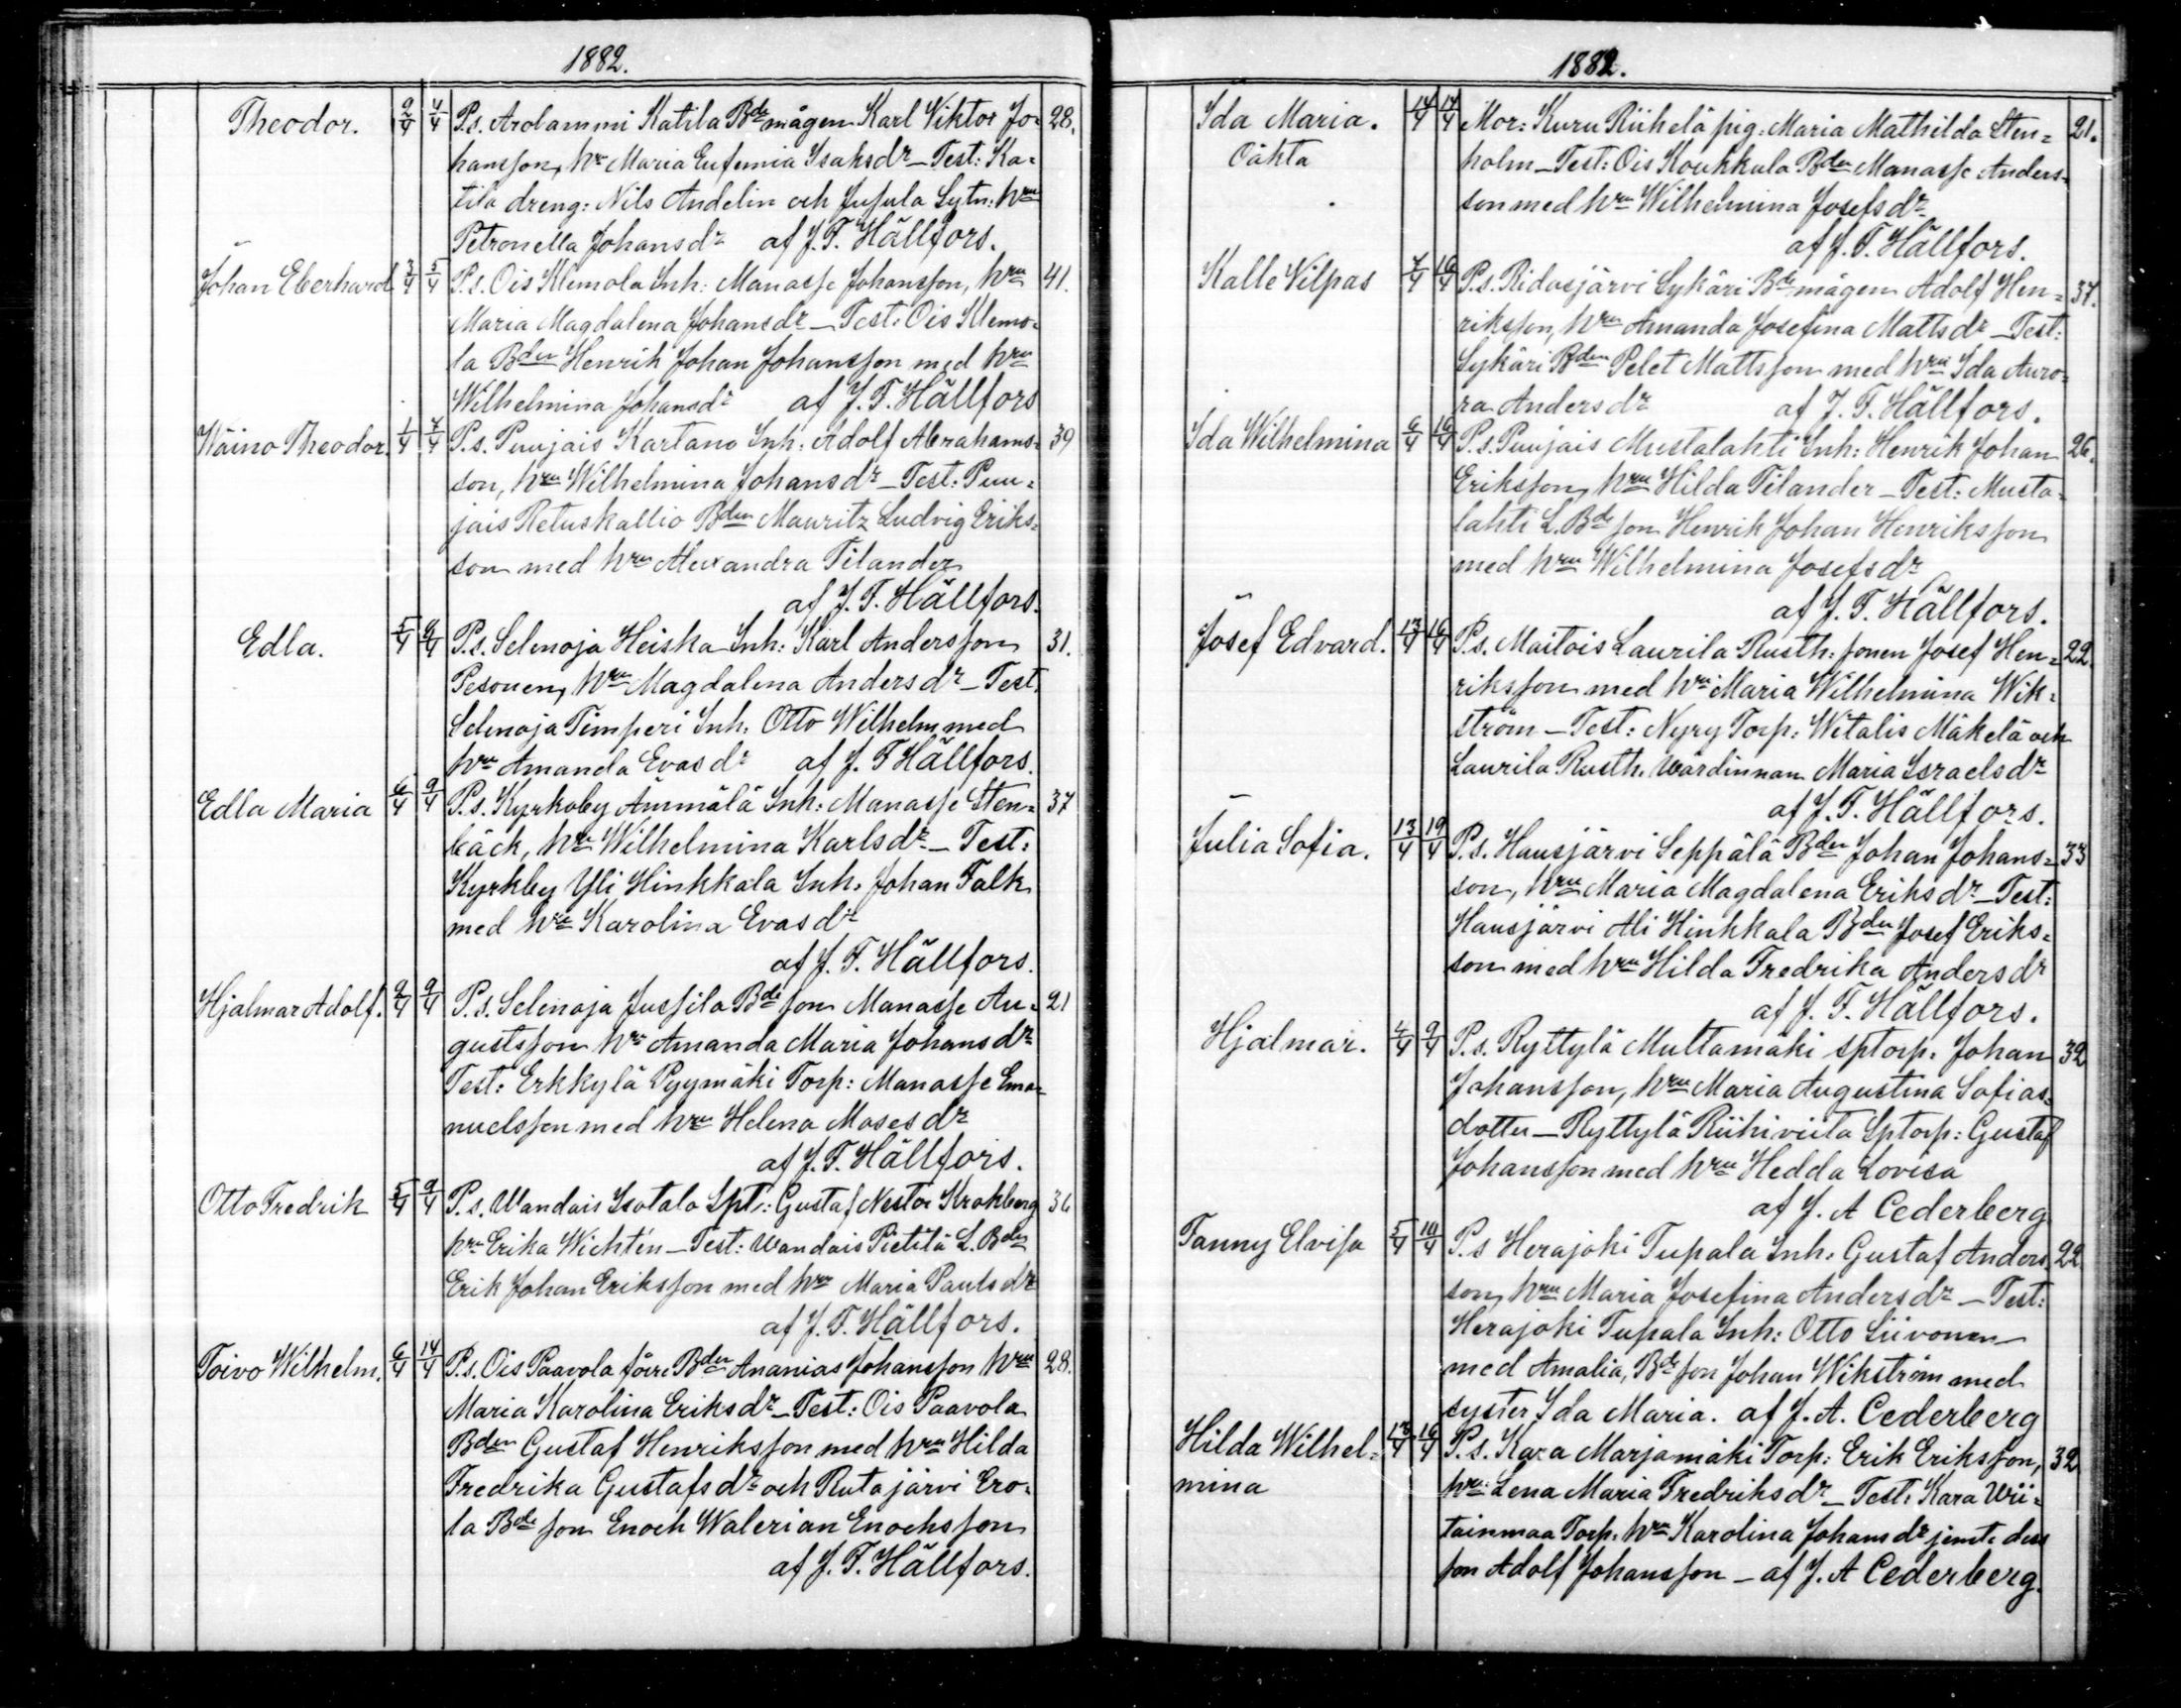 1882.
Theodor. 2/4 4/4 P.s. Arolammi Katila Bde mågen Karl Viktor Jo- 28.
hansson, hru Maria Eufemia Isaksdr – Test: Ka-
tila dreng: Nils Andelin och Jusula Sytn: hru
Petronella Johansdr af J. F. Hällfors.
Johan Eberhard 3/4 5/4 P.s. Ois Klemola Inh: Manasse Johansson, hru 41.
Maria Magdalena Johansdr – Test: Ois Klemo-
la Bden Henrik Johan Johansson med hru
Wilhelmina Johansdr af J. F. Hällfors
Wäino Theodor. 1/4 7/4 P.s. Puujais Kartano Inh: Adolf Abrahams- 39
son, hru Wilhelmina Johansdr – Test: Puu-
jais Retuskallio Bden Mauritz Ludvig Eriks-
son med hru Alexandra Tilander
af J. F. Hällfors.
Edla. 5/4 8/4 P.s. Selenoja Heiska Inh: Karl Andersson 31.
Pesonen, hru Magdalena Andersdr – Test.
Selenoja Timperi Inh. Otto Wilhelm med
hru Amanda Evasdr af J. F Hällfors.
Edla Maria 6/4 9/4 P.s. Kyrkoby Ämmälä Inh: Manasse Sten- 37
bäck, hru Wilhelmina Karlsdr – Test:
Kyrkby Yli Hinkkala Inh. Johan Falk
med hru Karolina Evasdr
af J. F. Hällfors.
Hjalmar Adolf. 2/4 9/4 P.s. Selenoja Jussila Bde son Manasse Au- 21
gustsson hru Amanda Maria Johansdr
Test: Erkkylä Pyymäki Torp: Manasse Ema-
nuelsson med hru Helena Mosesdr
af J. F. Hällfors.
Otto Fredrik 5/4 9/4 P.s. Wandais Isotalo Spt: Gustaf Nestor Krohberg 36
hru Erika Wichtén – Test: Wandais Pietilä L. Bden
Erik Johan Eriksson med hru Maria Paulsdr
af J. F. Hällfors.
Toivo Wilhelm. 6/4 14/4 P.s. Ois Paavola förre Bden Ananias Johansson hru 28.
Maria Karolina Eriksdr – Test: Ois Paavola
Bden Gustaf Henriksson med hru Hilda
Fredrika Gustafsdr och Rutajärvi Ero-
la Bde son Enoch Walerian Enochsson
af J. F. Hällfors.
1882.
Ida Maria. 14/4 14/4 Mor: Kuru Riihelä pig: Maria Mathilda Sten- 21.
Oäkta holm – Test: Ois Koukkula Bden Manasse Anders-
son med hru Wilhelmina Josefsdr
af J. F. Hällfors.
Kalle Vilpas 7/4 16/4 P.s. Ridasjärvi Sykäri Bde mågen Adolf Hen- 37.
riksson, hru Amanda Josefina Mattsdr – Test:
Sykäri Bden Pelet Mattsson med hru Ida Auro-
ra Andersdr af J. F. Hällfors.
Ida Wilhelmina 6/4 16/4 P.s. Puujais Mustalahti Inh: Henrik Johan 26.
Eriksson, hru Hilda Tilander – Test: Musta-
lahti L. Bde son Henrik Johan Henriksson
med hru Wilhelmina Josefsdr
af J. F. Hällfors.
Josef Edvard. 13/4 16/4 P.s. Maitois Laurila Rusth: sonen Josef Hen- 22.
riksson med hru Maria Wilhelmina Wik-
ström – Test: Nyry Torp: Witalis Mäkelä och
Laurila Rusth. Wärdinnan Maria Israelsdr
af J. F. Hällfors.
Julia Sofia. 13/4 19/4 P.s. Hausjärvi Seppälä Bden Johan Johans- 33
son, hru Maria Magdalena Eriksdr – Test:
Hausjärvi Ali Hinkkala Bden Josef Eriks-
son med hru Hilda Fredrika Andersdr
af J. F. Hällfors.
Hjalmar. 4/4 9/4 P.s. Ryttylä Multamäki sptorp. Johan 32
Johansson, hru Maria Augustina Sofias-
dotter – Ryttylä Riihiviita Sptorp: Gustaf
Johansson med hru Hedda Lovisa
af J. A Cederberg
Fanny Elvisa 5/4 10/4 P.s Herajoki Tupala Inh: Gustaf Anders- 22
son, hru Maria Josefina Andersdr – Test:
Herajoki Tupala Inh: Otto Siivonen
med Amalia, Bde son Johan Wikström med
syster Ida Maria. af J. A. Cederberg
Hilda Wilhel- 13/4 16/4 P.s. Kara Marjamäki Torp: Erik Eriksson, 32
mina hru Lena Maria Fredriksdr – Test: Kara Wii-
tainmaa Torp. hru Karolina Johansdr jemte dess
son Adolf Johansson – af J. A Cederberg.